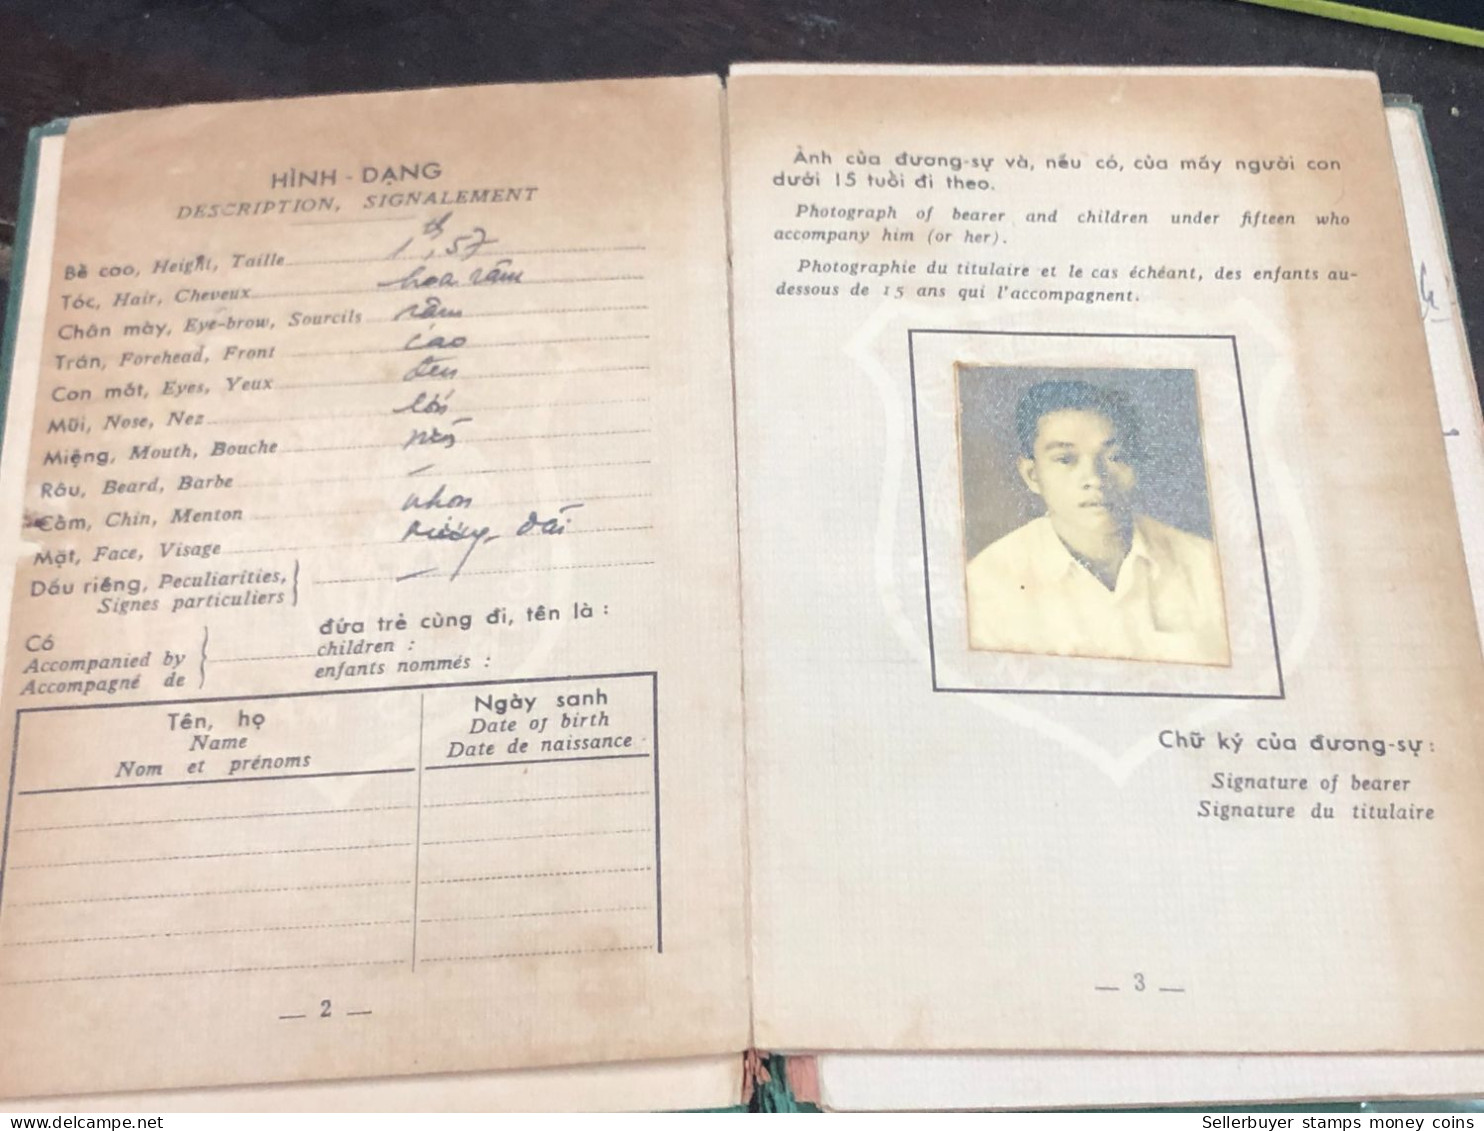 HÌNH - DẠNG
DESCRIPTION, SIGNALEMENT
Bề cao, Height, Taille 1th,57
Tóc, Hair, Cheveux hoa râm
Chân mày, Eye-brow, Sourcils râm
Trán, Forehead, Front cao
Con mắt, Eyes, Yeux đen
Mũi, Nose, Nez lớn
Miệng, Mouth, Bouche
Râu, Beard, Barbe —
Cằm, Chin, Menton nhọn
Mặt, Face, Visage dài
Dấu riêng, Peculiarities, —
Signes particuliers
Có
Accompanied by
Accompagné de
đứa trẻ cùng đi, tên là :
children :
enfants nommés :
Tên, họ
Name
Nom et prénoms
Ngày sanh
Date of birth
Date de naissance
— 2 —
Ảnh của đương-sự và, nếu có, của mấy người con
dưới 15 tuổi đi theo.
Photograph of bearer and children under fifteen who
accompany him (or her).
Photographie du titulaire et le cas échéant, des enfants au-
dessous de 15 ans qui l'accompagnent.
Chữ ký của đương-sự :
Signature of bearer
Signature du titulaire
— 3 —
Sellerbuyer stamps money coins